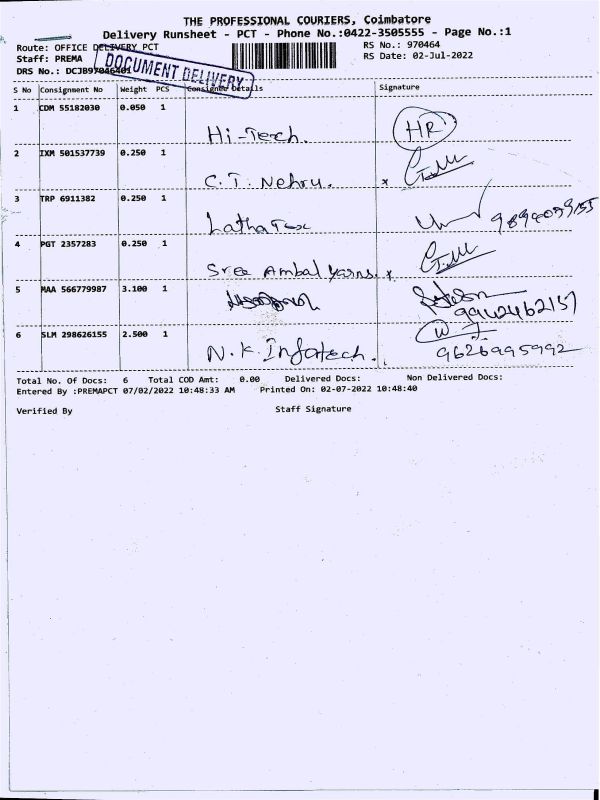 THE PROFESSIONAL COURIERS, Coimbatore
Delivery Runsheet - PCT - Phone No.:0422-3505555 - Page No.:1
Route: OFFICE DELIVERY PCT
RS No.: 970464
Staff: PREMA
RS Date: 02-Jul-2022
DRS No.: DCJB97046401
DOCUMENT DELIVERY
S No Consignment No Weight PCS Consignee Details Signature
1 CDM 55182030 0.050 1
Hi-Tech. HR
2 IXM 501537739 0.250 1
C.T. Nehru. x
3 TRP 6911382 0.250 1
Latha Tex
4 PGT 2357283 0.250 1
Sree Ambal Yarns. x
5 MAA 566779987 3.100 1
9942462157
6 SLM 298626155 2.500 1
N.K. Infotech. 9626995992
Total No. Of Docs: 6 Total COD Amt: 0.00 Delivered Docs: Non Delivered Docs:
Entered By :PREMAPCT 07/02/2022 10:48:33 AM Printed On: 02-07-2022 10:48:40
Verified By Staff Signature